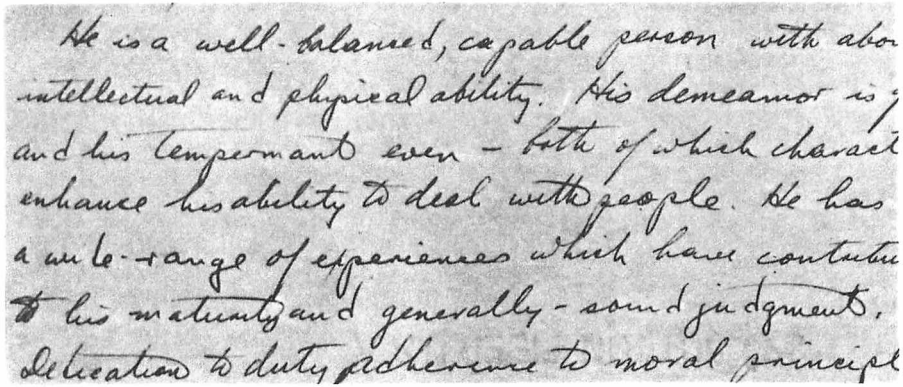 He is a well-balanced, capable person with abo
intellectual and physical ability. His demeanor is
and his tempermant even - both of which charact
enhance his ability to deal with people. He has
a wide-range of experiences which have contribu
to his maturity and generally - sound judgment.
Dedication to duty, adherence to moral principl